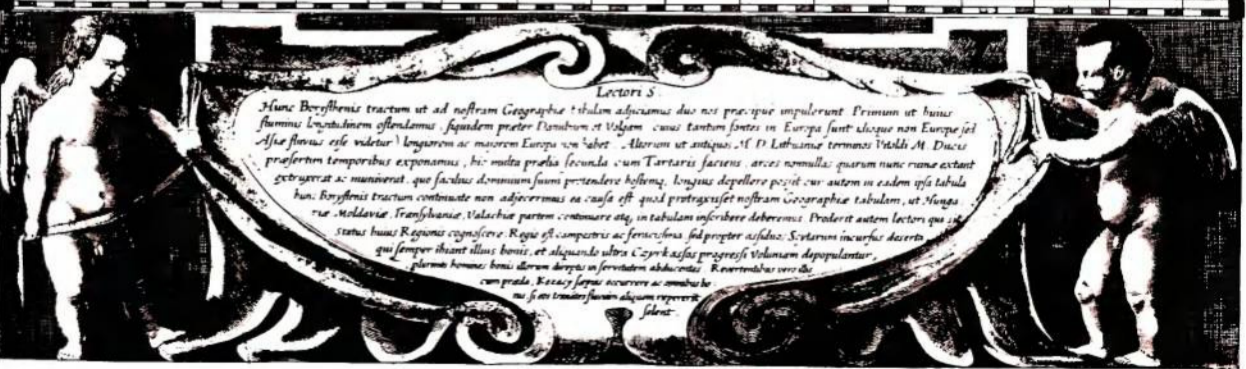 Lectori S.
Hunc Borysthenis tractum ut ad nostram Geographiæ tabulam adjiciamus duo nos præcipue impulerunt Primum ut huius
fluminis longitudinem ostendamus, siquidem præter Danubium et Volgam cuius tantum fontes in Europa sunt ideoque non Europæ sed
Asiæ fluvius esse videtur) longiorem ac maiorem Europa non habet. Alterum ut antiquos M. D. Lithuaniæ terminos Vitoldi M. Ducis
præsertim temporibus exponamus, hic multa prælia secunda cum Tartaris faciens, arces nonnullas quarum nunc ruinæ extant
extruxerat ac muniverat, quo facilius dominium suum protendere hostemq. longius depellere posset cur autem in eadem ipsa tabula
hunc Borystenis tractum continuate non adjecerimus ea causa est quod protraxisset nostram Geographiæ tabulam, ut Hunga
riæ Moldaviæ, Transylvaniæ, Valachiæ partem continuare atq. in tabulam inscribere deberemus. Proderit autem lectori qui sit
status huius Regionis cognoscere. Regio est campestris ac feracissima sed propter assiduos Scytarum incursus deserta
qui semper inhiant illius bonis, et aliquando ultra Czyrkassos progressi Voliniam depopulantur,
plurimos homines bonis illorum direptis in servitutem abducentes. Revertentibus vero illis
cum præda, Kozacy sæpius occurrere ac omnibus bo
nis si eos fluvium aliquem
solent.